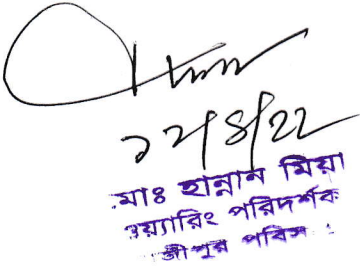 ১২/৪/২২
মোঃ হান্নান মিয়া
ওয়্যারিং পরিদর্শক
পবিস